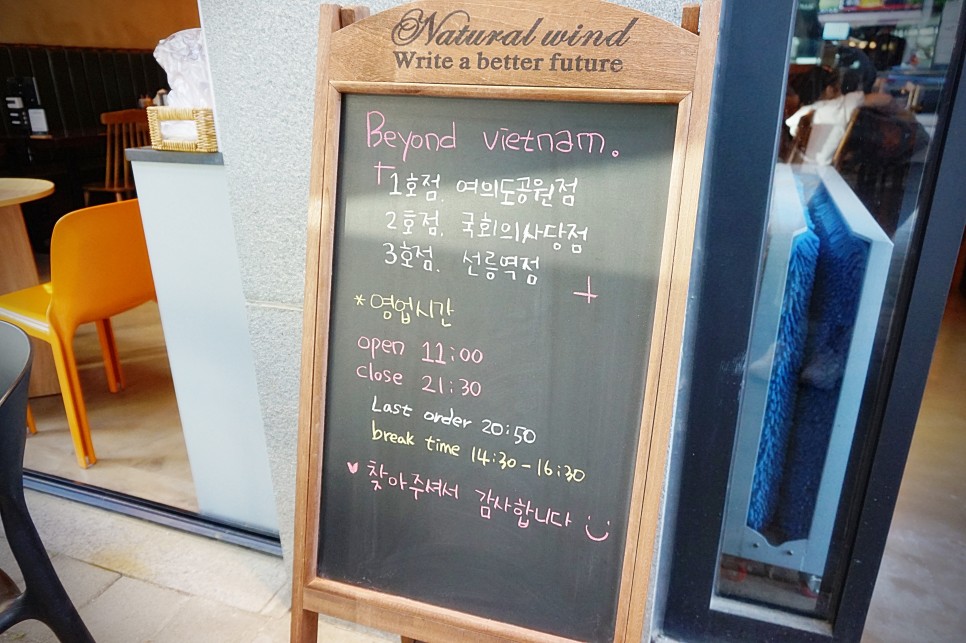 Natural wind
Write a better future
Beyond vietnam.
1호점. 여의도공원점
2호점. 국회의사당점
3호점. 선릉역점
*영업시간
open 11:00
close 21:30
Last order 20:50
break time 14:30-16:30
♥ 찾아주셔서 감사합니다